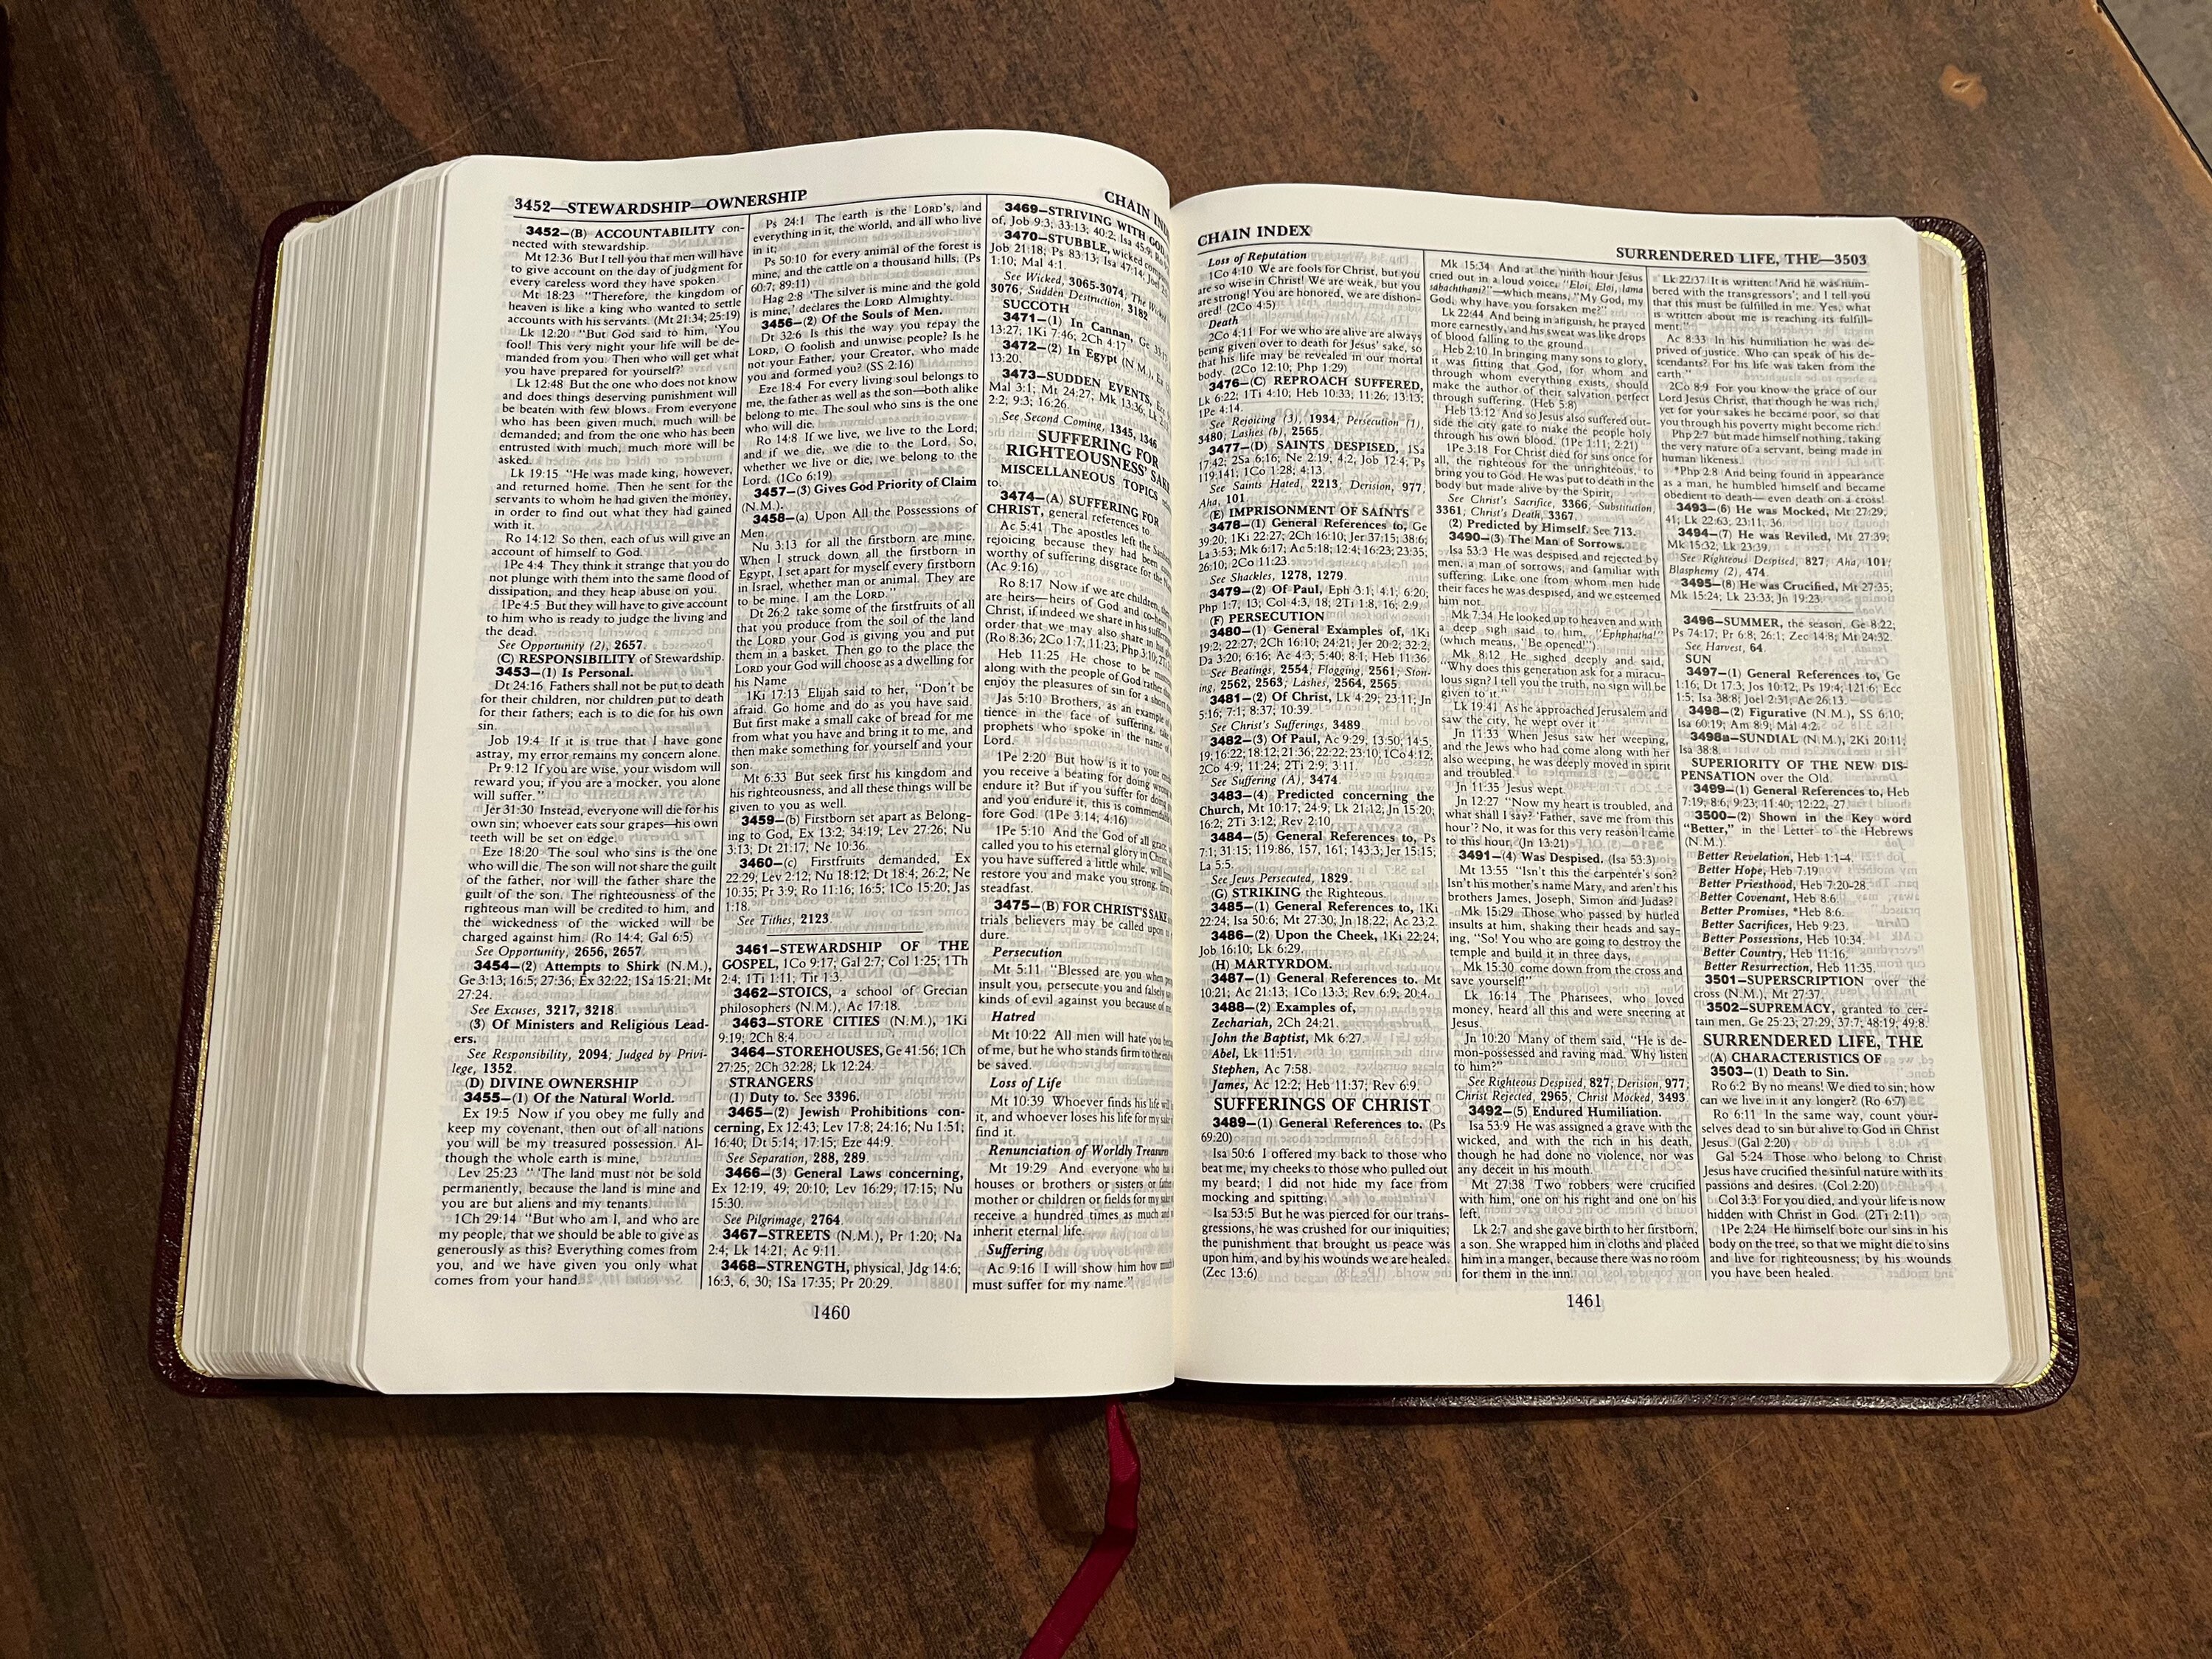 3452—STEWARDSHIP—OWNERSHIP
CHAIN
3452—(B) ACCOUNTABILITY con-
nected with stewardship.
Mt 12:36 But I tell you that men will have
to give account on the day of judgment for
every careless word they have spoken.
Mt 18:23 "Therefore, the kingdom of
heaven is like a king who wanted to settle
accounts with his servants. (Mt 21:34; 25:19)
Lk 12:20 "But God said to him, 'You
fool! This very night your life will be de-
manded from you. Then who will get what
you have prepared for yourself?'
Lk 12:48 But the one who does not know
and does things deserving punishment will
be beaten with few blows. From everyone
who has been given much, much will be
demanded; and from the one who has been
entrusted with much, much more will be
asked.
Lk 19:15 "He was made king, however,
and returned home. Then he sent for the
servants to whom he had given the money,
in order to find out what they had gained
with it.
Ro 14:12 So then, each of us will give an
account of himself to God.
1Pe 4:4 They think it strange that you do
not plunge with them into the same flood of
dissipation, and they heap abuse on you.
1Pe 4:5 But they will have to give account
to him who is ready to judge the living and
the dead.
See Opportunity (2), 2657.
(C) RESPONSIBILITY of Stewardship.
3453—(1) Is Personal.
Dt 24:16 Fathers shall not be put to death
for their children, nor children put to death
for their fathers; each is to die for his own
sin.
Job 19:4 If it is true that I have gone
astray, my error remains my concern alone.
Pr 9:12 If you are wise, your wisdom will
reward you; if you are a mocker, you alone
will suffer."
Jer 31:30 Instead, everyone will die for his
own sin; whoever eats sour grapes—his own
teeth will be set on edge.
Eze 18:20 The soul who sins is the one
who will die. The son will not share the guilt
of the father, nor will the father share the
guilt of the son. The righteousness of the
righteous man will be credited to him, and
the wickedness of the wicked will be
charged against him. (Ro 14:4; Gal 6:5)
See Opportunity, 2656, 2657.
3454—(2) Attempts to Shirk (N.M.),
Ge 3:13; 16:5; 27:36; Ex 32:22; 1Sa 15:21; Mt
27:24.
See Excuses, 3217, 3218.
(3) Of Ministers and Religious Lead-
ers.
See Responsibility, 2094; Judged by Privi-
lege, 1352.
(D) DIVINE OWNERSHIP
3455—(1) Of the Natural World.
Ex 19:5 Now if you obey me fully and
keep my covenant, then out of all nations
you will be my treasured possession. Al-
though the whole earth is mine,
Lev 25:23 " 'The land must not be sold
permanently, because the land is mine and
you are but aliens and my tenants.
1Ch 29:14 "But who am I, and who are
my people, that we should be able to give as
generously as this? Everything comes from
you, and we have given you only what
comes from your hand.
Ps 24:1 The earth is the LORD's, and
everything in it, the world, and all who live
in it;
Ps 50:10 for every animal of the forest is
mine, and the cattle on a thousand hills, (Ps
60:7; 89:11)
Hag 2:8 'The silver is mine and the gold
is mine,' declares the LORD Almighty.
3456—(2) Of the Souls of Men.
Dt 32:6 Is this the way you repay the
LORD, O foolish and unwise people? Is he
not your Father, your Creator, who made
you and formed you? (SS 2:16)
Eze 18:4 For every living soul belongs to
me, the father as well as the son—both alike
belong to me. The soul who sins is the one
who will die.
Ro 14:8 If we live, we live to the Lord;
and if we die, we die to the Lord. So,
whether we live or die, we belong to the
Lord. (1Co 6:19)
3457—(3) Gives God Priority of Claim
(N.M.).
3458—(a) Upon All the Possessions of
Men.
Nu 3:13 for all the firstborn are mine.
When I struck down all the firstborn in
Egypt, I set apart for myself every firstborn
in Israel, whether man or animal. They are
to be mine. I am the LORD."
Dt 26:2 take some of the firstfruits of all
that you produce from the soil of the land
the LORD your God is giving you and put
them in a basket. Then go to the place the
LORD your God will choose as a dwelling for
his Name
1Ki 17:13 Elijah said to her, "Don't be
afraid. Go home and do as you have said.
But first make a small cake of bread for me
from what you have and bring it to me, and
then make something for yourself and your
son.
Mt 6:33 But seek first his kingdom and
his righteousness, and all these things will be
given to you as well.
3459—(b) Firstborn set apart as Belong-
ing to God, Ex 13:2; 34:19; Lev 27:26; Nu
3:13; Dt 21:17; Ne 10:36.
3460—(c) Firstfruits demanded, Ex
22:29; Lev 2:12; Nu 18:12; Dt 18:4; 26:2; Ne
10:35; Pr 3:9; Ro 11:16; 16:5; 1Co 15:20; Jas
1:18.
See Tithes, 2123.
3461—STEWARDSHIP OF THE
GOSPEL, 1Co 9:17; Gal 2:7; Col 1:25; 1Th
2:4; 1Ti 1:11; Tit 1:3.
3462—STOICS, a school of Grecian
philosophers (N.M.), Ac 17:18.
3463—STORE CITIES (N.M.), 1Ki
9:19; 2Ch 8:4.
3464—STOREHOUSES, Ge 41:56; 1Ch
27:25; 2Ch 32:28; Lk 12:24.
STRANGERS
(1) Duty to. See 3396.
3465—(2) Jewish Prohibitions con-
cerning, Ex 12:43; Lev 17:8; 24:16; Nu 1:51;
16:40; Dt 5:14; 17:15; Eze 44:9.
See Separation, 288, 289.
3466—(3) General Laws concerning,
Ex 12:19, 49; 20:10; Lev 16:29; 17:15; Nu
15:30.
See Pilgrimage, 2764.
3467—STREETS (N.M.), Pr 1:20; Na
2:4; Lk 14:21; Ac 9:11.
3468—STRENGTH, physical, Jdg 14:6;
16:3, 6, 30; 1Sa 17:35; Pr 20:29.
3469—STRIVING WITH GOD
of, Job 9:3; 33:13; 40:2; Isa 45:9;
3470—STUBBLE, wicked
Job 21:18; Ps 83:13; Isa 47:14; Joel
1:10; Mal 4:1.
See Wicked, 3065-3074; The Wicked
3076; Sudden Destruction, 3182
SUCCOTH
3471—(1) In Cannan, Ge 33:17
13:27; 1Ki 7:46; 2Ch 4:17.
3472—(2) In Egypt (N.M.), Ex
13:20.
3473—SUDDEN EVENTS,
Mal 3:1; Mt 24:27; Mk 13:36; Lk
2:2; 9:3; 16:26.
See Second Coming, 1345, 1346
SUFFERING FOR
RIGHTEOUSNESS' SAKE
MISCELLANEOUS TOPICS
to.
3474—(A) SUFFERING FOR
CHRIST, general references to
Ac 5:41 The apostles left the
rejoicing because they had been
worthy of suffering disgrace for the
(Ac 9:16)
Ro 8:17 Now if we are children,
are heirs—heirs of God and co-heirs
Christ, if indeed we share in his
order that we may also share in
(Ro 8:36; 2Co 1:7; 11:23; Php 3:10;
Heb 11:25 He chose to be
along with the people of God rather
enjoy the pleasures of sin for a short
Jas 5:10 Brothers, as an example
tience in the face of suffering,
prophets who spoke in the name of
Lord.
1Pe 2:20 But how is it to your
you receive a beating for doing wrong
endure it? But if you suffer for doing
and you endure it, this is commendable
fore God. (1Pe 3:14; 4:16)
1Pe 5:10 And the God of all grace,
called you to his eternal glory in Christ,
you have suffered a little while, will
restore you and make you strong, firm
steadfast.
3475—(B) FOR CHRIST'S SAKE
trials believers may be called upon
dure.
Persecution
Mt 5:11 "Blessed are you when
insult you, persecute you and falsely
kinds of evil against you because of
Hatred
Mt 10:22 All men will hate you
of me, but he who stands firm to the end
be saved.
Loss of Life
Mt 10:39 Whoever finds his life will
it, and whoever loses his life for my sake
find it.
Renunciation of Worldly Treasure
Mt 19:29 And everyone who
houses or brothers or sisters or
mother or children or fields for my sake
receive a hundred times as much and
inherit eternal life.
Suffering
Ac 9:16 I will show him how much
must suffer for my name."
1460
CHAIN INDEX
SURRENDERED LIFE, THE—3503
Loss of Reputation
1Co 4:10 We are fools for Christ, but you
are so wise in Christ! We are weak, but you
are strong! You are honored, we are dishon-
ored! (2Co 4:5)
Death
2Co 4:11 For we who are alive are always
being given over to death for Jesus' sake, so
that his life may be revealed in our mortal
body. (2Co 12:10; Php 1:29)
3476—(C) REPROACH SUFFERED,
Lk 6:22; 1Ti 4:10; Heb 10:33; 11:26; 13:13;
1Pe 4:14.
See Rejoicing (3), 1934; Persecution (1),
3480; Lashes (b), 2565.
3477—(D) SAINTS DESPISED, 1Sa
17:42; 2Sa 6:16; Ne 2:19; 4:2; Job 12:4; Ps
119:141; 1Co 1:28; 4:13.
See Saints Hated, 2213; Derision, 977;
Aha, 101
(E) IMPRISONMENT OF SAINTS
3478—(1) General References to, Ge
39:20; 1Ki 22:27; 2Ch 16:10; Jer 37:15; 38:6;
La 3:53; Mk 6:17; Ac 5:18; 12:4; 16:23; 23:35;
26:10; 2Co 11:23.
See Shackles, 1278, 1279.
3479—(2) Of Paul, Eph 3:1; 4:1; 6:20;
Php 1:7, 13; Col 4:3, 18; 2Ti 1:8, 16; 2:9.
(F) PERSECUTION
3480—(1) General Examples of, 1Ki
19:2; 22:27; 2Ch 16:10; 24:21; Jer 20:2; 32:2;
Da 3:20; 6:16; Ac 4:3; 5:40; 8:1; Heb 11:36.
See Beatings, 2554; Flogging, 2561; Ston-
ing, 2562, 2563; Lashes, 2564, 2565.
3481—(2) Of Christ, Lk 4:29; 23:11; Jn
5:16; 7:1; 8:37; 10:39.
See Christ's Sufferings, 3489.
3482—(3) Of Paul, Ac 9:29; 13:50; 14:5,
19; 16:22; 18:12; 21:36; 22:22; 23:10; 1Co 4:12;
2Co 4:9; 11:24; 2Ti 2:9; 3:11.
See Suffering (A), 3474.
3483—(4) Predicted concerning the
Church, Mt 10:17; 24:9; Lk 21:12; Jn 15:20;
16:2; 2Ti 3:12; Rev 2:10.
3484—(5) General References to, Ps
7:1; 31:15; 119:86, 157, 161; 143:3; Jer 15:15;
La 5:5.
See Jews Persecuted, 1829.
(G) STRIKING the Righteous.
3485—(1) General References to, 1Ki
22:24; Isa 50:6; Mt 27:30; Jn 18:22; Ac 23:2.
3486—(2) Upon the Cheek, 1Ki 22:24;
Job 16:10; Lk 6:29.
(H) MARTYRDOM.
3487—(1) General References to. Mt
10:21; Ac 21:13; 1Co 13:3; Rev 6:9; 20:4.
3488—(2) Examples of,
Zechariah, 2Ch 24:21.
John the Baptist, Mk 6:27.
Abel, Lk 11:51.
Stephen, Ac 7:58.
James, Ac 12:2; Heb 11:37; Rev 6:9.
SUFFERINGS OF CHRIST
3489—(1) General References to. (Ps
69:20)
Isa 50:6 I offered my back to those who
beat me, my cheeks to those who pulled out
my beard; I did not hide my face from
mocking and spitting.
Isa 53:5 But he was pierced for our trans-
gressions, he was crushed for our iniquities;
the punishment that brought us peace was
upon him, and by his wounds we are healed.
(Zec 13:6)
Mk 15:34 And at the ninth hour Jesus
cried out in a loud voice, "Eloi, Eloi, lama
sabachthani?"—which means, "My God, my
God, why have you forsaken me?"
Lk 22:44 And being in anguish, he prayed
more earnestly, and his sweat was like drops
of blood falling to the ground
Heb 2:10 In bringing many sons to glory,
it was fitting that God, for whom and
through whom everything exists, should
make the author of their salvation perfect
through suffering. (Heb 5:8)
Heb 13:12 And so Jesus also suffered out-
side the city gate to make the people holy
through his own blood. (1Pe 1:11; 2:21)
1Pe 3:18 For Christ died for sins once for
all, the righteous for the unrighteous, to
bring you to God. He was put to death in the
body but made alive by the Spirit,
See Christ's Sacrifice, 3366; Substitution,
3361; Christ's Death, 3367.
(2) Predicted by Himself. See 713.
3490—(3) The Man of Sorrows.
Isa 53:3 He was despised and rejected by
men, a man of sorrows, and familiar with
suffering. Like one from whom men hide
their faces he was despised, and we esteemed
him not.
Mk 7:34 He looked up to heaven and with
a deep sigh said to him, "Ephphatha!"
(which means, "Be opened!")
Mk 8:12 He sighed deeply and said,
"Why does this generation ask for a miracu-
lous sign? I tell you the truth, no sign will be
given to it."
Lk 19:41 As he approached Jerusalem and
saw the city, he wept over it
Jn 11:33 When Jesus saw her weeping,
and the Jews who had come along with her
also weeping, he was deeply moved in spirit
and troubled.
Jn 11:35 Jesus wept.
Jn 12:27 "Now my heart is troubled, and
what shall I say? 'Father, save me from this
hour'? No, it was for this very reason I came
to this hour. (Jn 13:21)
3491—(4) Was Despised. (Isa 53:3)
Mt 13:55 "Isn't this the carpenter's son?
Isn't his mother's name Mary, and aren't his
brothers James, Joseph, Simon and Judas?
Mk 15:29 Those who passed by hurled
insults at him, shaking their heads and say-
ing, "So! You who are going to destroy the
temple and build it in three days,
Mk 15:30 come down from the cross and
save yourself!
Lk 16:14 The Pharisees, who loved
money, heard all this and were sneering at
Jesus.
Jn 10:20 Many of them said, "He is de-
mon-possessed and raving mad. Why listen
to him?"
See Righteous Despised, 827; Derision, 977;
Christ Rejected, 2965; Christ Mocked, 3493.
3492—(5) Endured Humiliation.
Isa 53:9 He was assigned a grave with the
wicked, and with the rich in his death,
though he had done no violence, nor was
any deceit in his mouth.
Mt 27:38 Two robbers were crucified
with him, one on his right and one on his
left.
Lk 2:7 and she gave birth to her firstborn,
a son. She wrapped him in cloths and placed
him in a manger, because there was no room
for them in the inn.
Lk 22:37 It is written: 'And he was num-
bered with the transgressors'; and I tell you
that this must be fulfilled in me. Yes, what
is written about me is reaching its fulfill-
ment."
Ac 8:33 In his humiliation he was de-
prived of justice. Who can speak of his de-
scendants? For his life was taken from the
earth."
2Co 8:9 For you know the grace of our
Lord Jesus Christ, that though he was rich,
yet for your sakes he became poor, so that
you through his poverty might become rich.
Php 2:7 but made himself nothing, taking
the very nature of a servant, being made in
human likeness.
*Php 2:8 And being found in appearance
as a man, he humbled himself and became
obedient to death— even death on a cross!
3493—(6) He was Mocked, Mt 27:29,
41; Lk 22:63; 23:11, 36.
3494—(7) He was Reviled, Mt 27:39;
Mk 15:32; Lk 23:39.
See Righteous Despised, 827; Aha, 101;
Blasphemy (2), 474.
3495—(8) He was Crucified, Mt 27:35;
Mk 15:24; Lk 23:33; Jn 19:23.
3496—SUMMER, the season, Ge 8:22;
Ps 74:17; Pr 6:8; 26:1; Zec 14:8; Mt 24:32.
See Harvest, 64.
SUN
3497—(1) General References to, Ge
1:16; Dt 17:3; Jos 10:12; Ps 19:4; 121:6; Ecc
1:5; Isa 38:8; Joel 2:31; Ac 26:13.
3498—(2) Figurative (N.M.), SS 6:10;
Isa 60:19; Am 8:9; Mal 4:2.
3498a—SUNDIAL (N.M.), 2Ki 20:11;
Isa 38:8.
SUPERIORITY OF THE NEW DIS-
PENSATION over the Old.
3499—(1) General References to, Heb
7:19; 8:6; 9:23; 11:40; 12:22, 27
3500—(2) Shown in the Key word
"Better," in the Letter to the Hebrews
(N.M.).
Better Revelation, Heb 1:1-4.
Better Hope, Heb 7:19.
Better Priesthood, Heb 7:20-28.
Better Covenant, Heb 8:6.
Better Promises, *Heb 8:6.
Better Sacrifices, Heb 9:23.
Better Possessions, Heb 10:34.
Better Country, Heb 11:16.
Better Resurrection, Heb 11:35.
3501—SUPERSCRIPTION over the
cross (N.M.), Mt 27:37.
3502—SUPREMACY, granted to cer-
tain men, Ge 25:23; 27:29; 37:7; 48:19; 49:8.
SURRENDERED LIFE, THE
(A) CHARACTERISTICS OF
3503—(1) Death to Sin.
Ro 6:2 By no means! We died to sin; how
can we live in it any longer? (Ro 6:7)
Ro 6:11 In the same way, count your-
selves dead to sin but alive to God in Christ
Jesus. (Gal 2:20)
Gal 5:24 Those who belong to Christ
Jesus have crucified the sinful nature with its
passions and desires. (Col 2:20)
Col 3:3 For you died, and your life is now
hidden with Christ in God. (2Ti 2:11)
1Pe 2:24 He himself bore our sins in his
body on the tree, so that we might die to sins
and live for righteousness; by his wounds
you have been healed.
1461